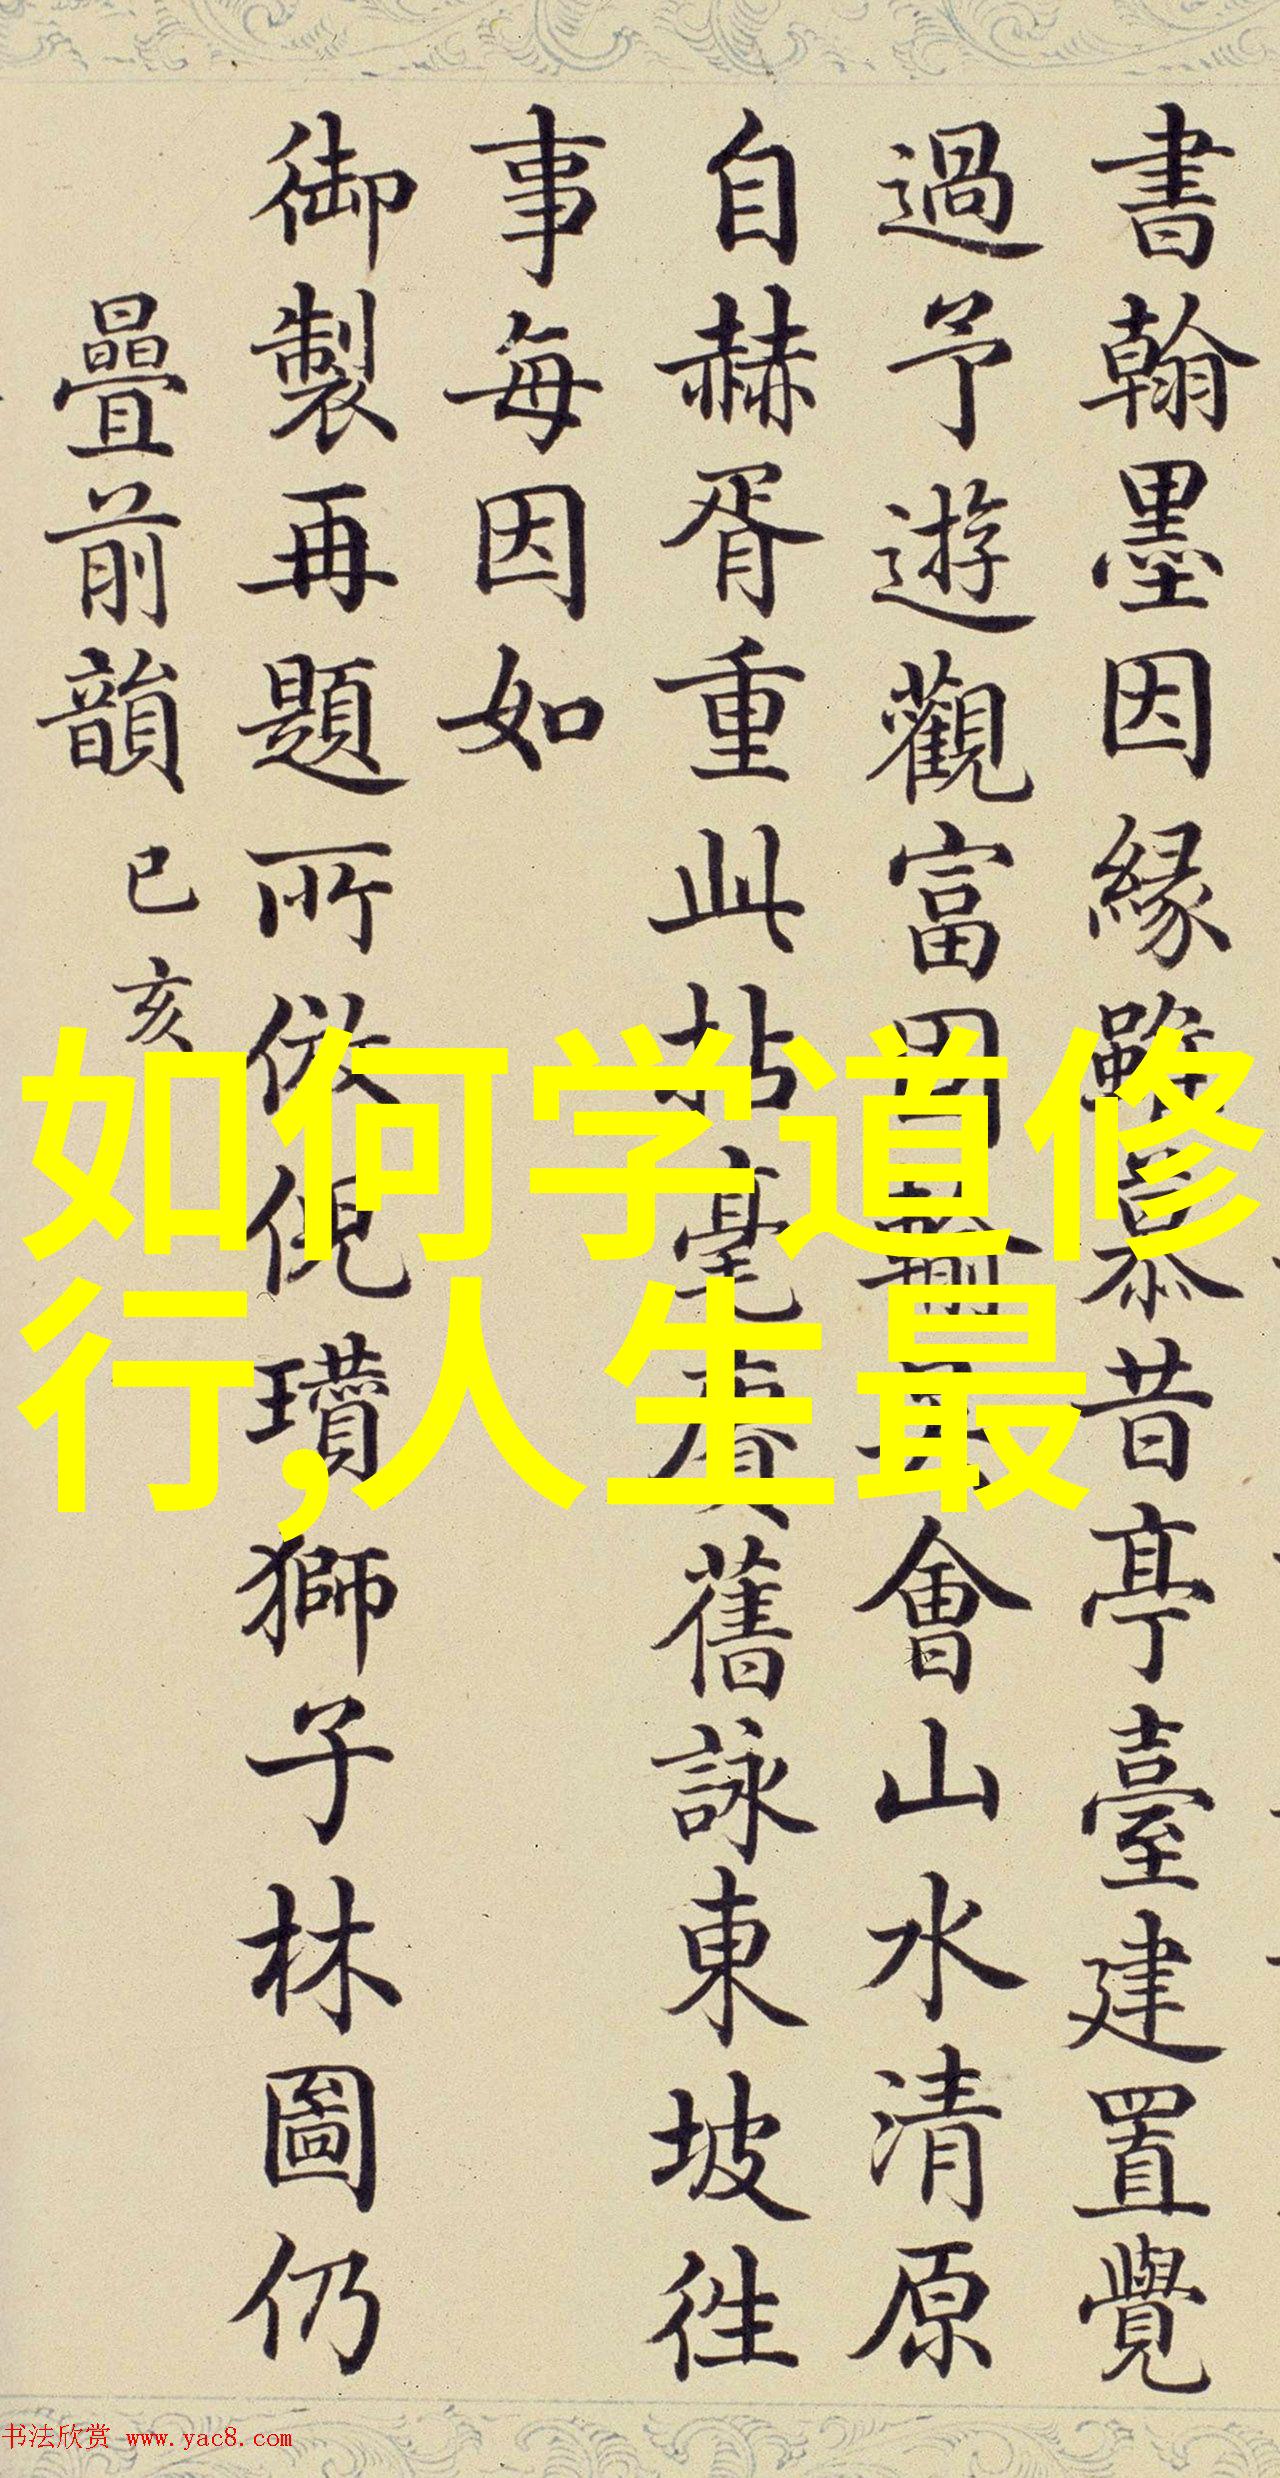 書翰墨因緣雖慕昔亭臺建置覺
過予遊觀富罔輸 會山水清原
自赫胥重此拈毫賡舊詠東坡徃
事每因如
御製再題所倣倪瓚獅子林圖仍
疊前韻 已亥
如何学道修
行,人生最
书法欣赏 www.yac8.com